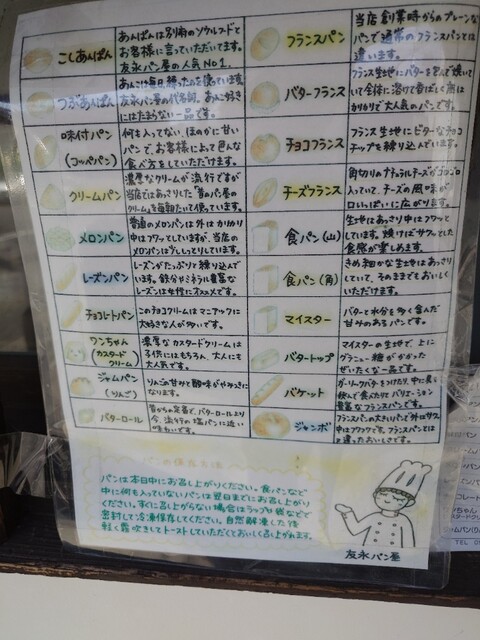 こしあんぱん
あんぱんは別府のソウルフードと
お客様に言っていただいてます。
友永パン屋の人気No.1.
つぶあんぱん
あんこは毎日、練ったのを使っています。
友永パン屋の代名詞。あんこ好き
にはたまらない一品です。
味付パン
(コッペパン)
何も入ってない、ほのかに甘い
パンで、お客様によって色んな
食べ方をしていただけます。
クリームパン
濃厚なクリームが流行ですが
当店ではあっさりした「昔のパン屋の
クリーム」を毎朝たいて使っています。
メロンパン
普通のメロンパンは外はカリカリ
中はフワッとしていますが、当店の
メロンパンはずっしりとしています。
レーズンパン
レーズンがたっぷりと練り込んで
います。鉄分ミネラル豊富な
レーズンは女性にオススメです。
チョコレートパン
このチョコクリームはマニアックに
大好きな人が多いです。
ワンちゃん
(カスタード
クリーム)
濃厚なカスタードクリームは
子供にはもちろん、大人にも
大人気です。
ジャムパン
(りんご)
りんごの甘みと酸味がやみつきに
なります。
バターロール
昔からの定番で、バターロールより
今、流行の塩パンに近い
味わいです。
フランスパン
当店創業時からのプレーンな
パンで通常のフランスパンとは
違います。
バターフランス
フランス生地にバターを包んで焼いて
いて全体に溶けて香ばしく底は
カリカリで大人気のパンです。
チョコフランス
フランス生地にビターなチョコ
チップを練り込んでいます。
チーズフランス
角切りのナチュラルチーズがゴロゴロ
入っていて、チーズの風味が
口いっぱいに広がります。
食パン(山)
生地はあっさり中はフワッと
しています。焼けばサクッとした
食感が楽しめます。
食パン(角)
きめ細かな生地はあっさり
していて、そのままでもおいしく
いただけます。
マイスター
バターと水分を多く含んだ
甘みのあるパンです。
バタートップ
マイスターの生地で、上に
グラニュー糖がかかった
ぜいたくな一品です。
バケット
ガーリックバターをつけたり、中に具を
挟んで食べたりとバリエーション
豊富なフランスパンです。
ジャンボ
フランスパンの大きいパンで外はサクッ
中はフワフワです。フランスパンとは
違ったおいしさです。
パンの保存方法
パンは本日中にお召し上がりください。食パンなど
中に何も入っていないパンは翌日までにお召し上がり
ください。すぐに召し上がらない場合はラップや袋などで
密封して冷凍保存してください。自然解凍した後
軽く霧吹きしてトーストしていただくとおいしく召し上がれます。
友永パン屋